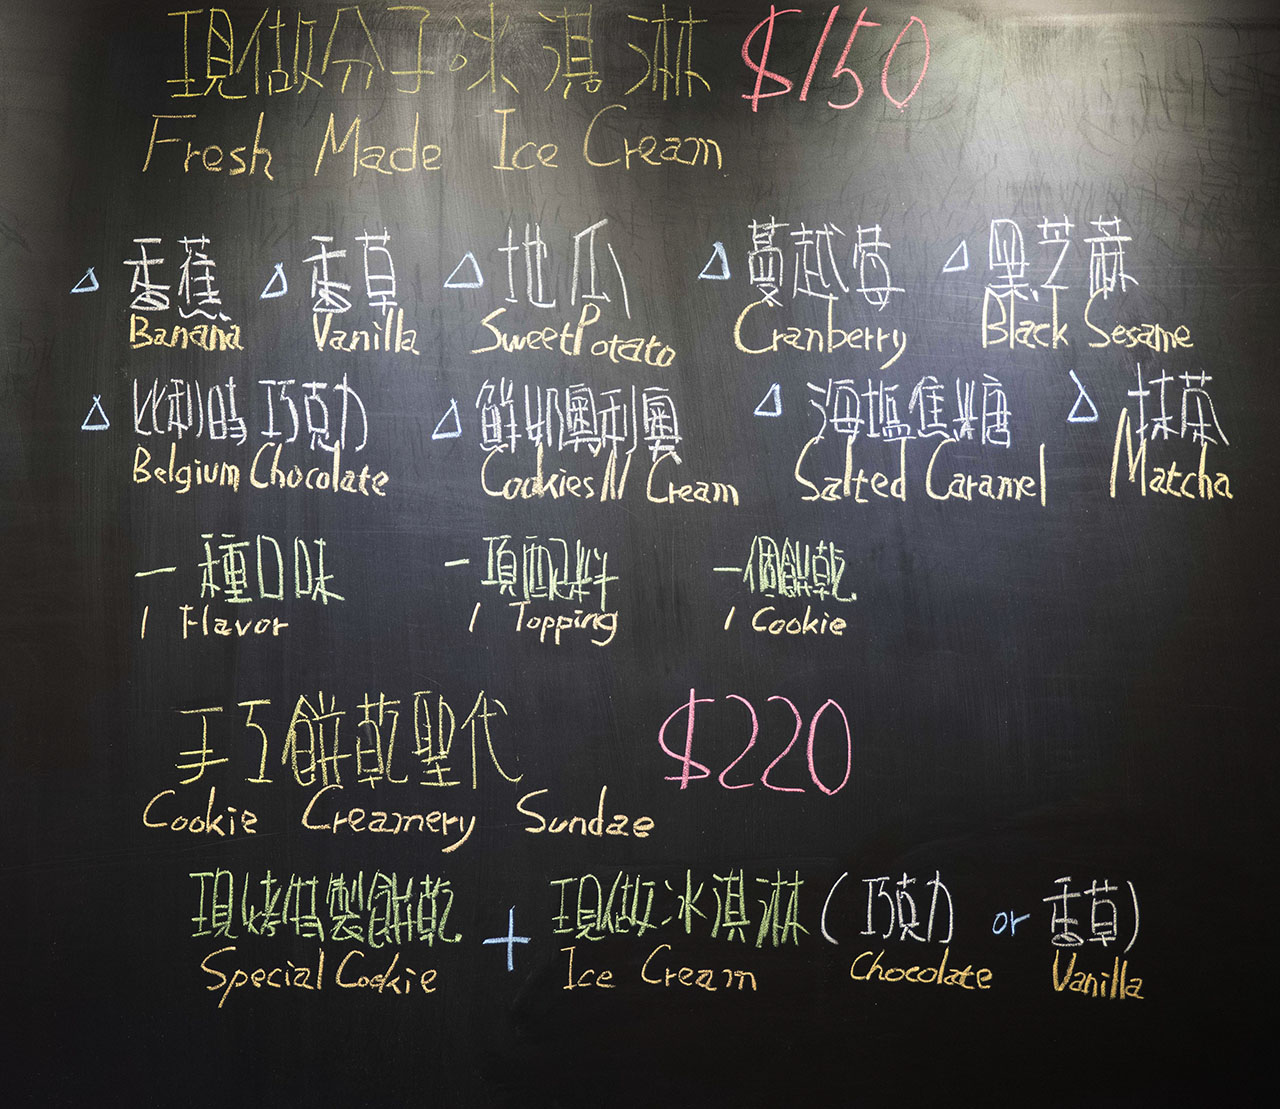 現做分子冰淇淋 $150
Fresh Made Ice Cream
△香蕉 △香草 △地瓜 △蔓越莓 △黑芝蔴
Banana Vanilla Sweet Potato Cranberry Black Sesame
△比利時巧克力 △鮮奶奧利奧 △海塩焦糖 △抹茶
Belgium Chocolate Cookies N Cream Salted Caramel Matcha
一種口味 一項配料 一個餅乾
1 Flavor 1 Topping 1 Cookie
手工餅乾聖代 $220
Cookie Creamery Sundae
現烤特製餅乾 + 現做冰淇淋 (巧克力 or 香草)
Special Cookie Ice Cream Chocolate Vanilla